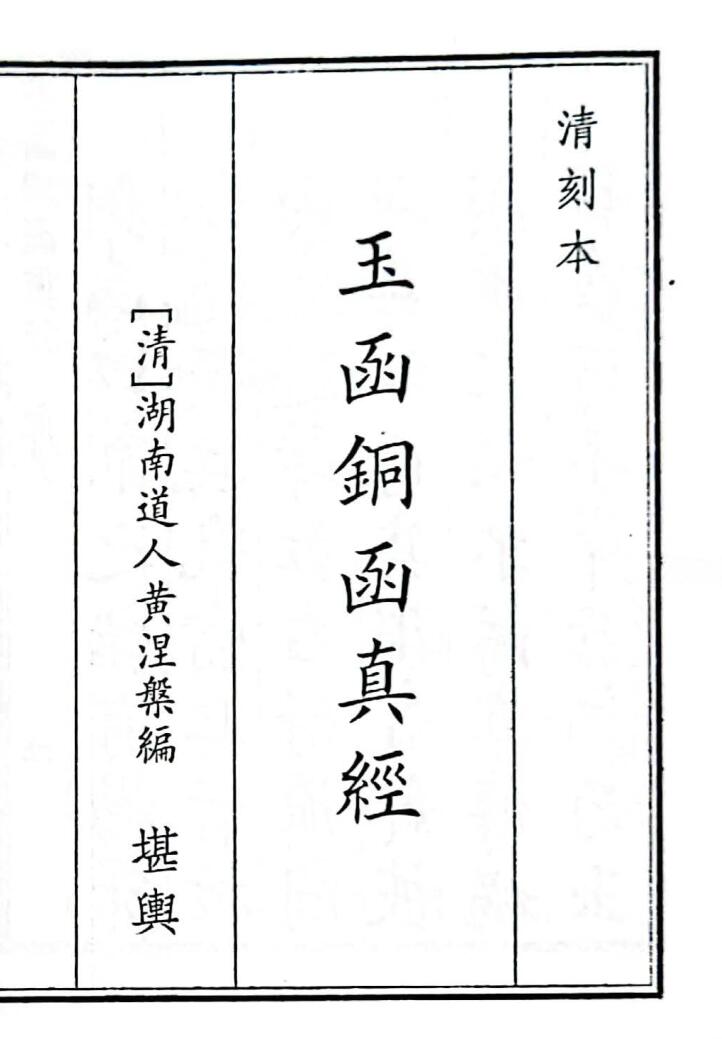 清刻本
玉函銅函真經
［清］湖南道人黄涅槃編　堪輿